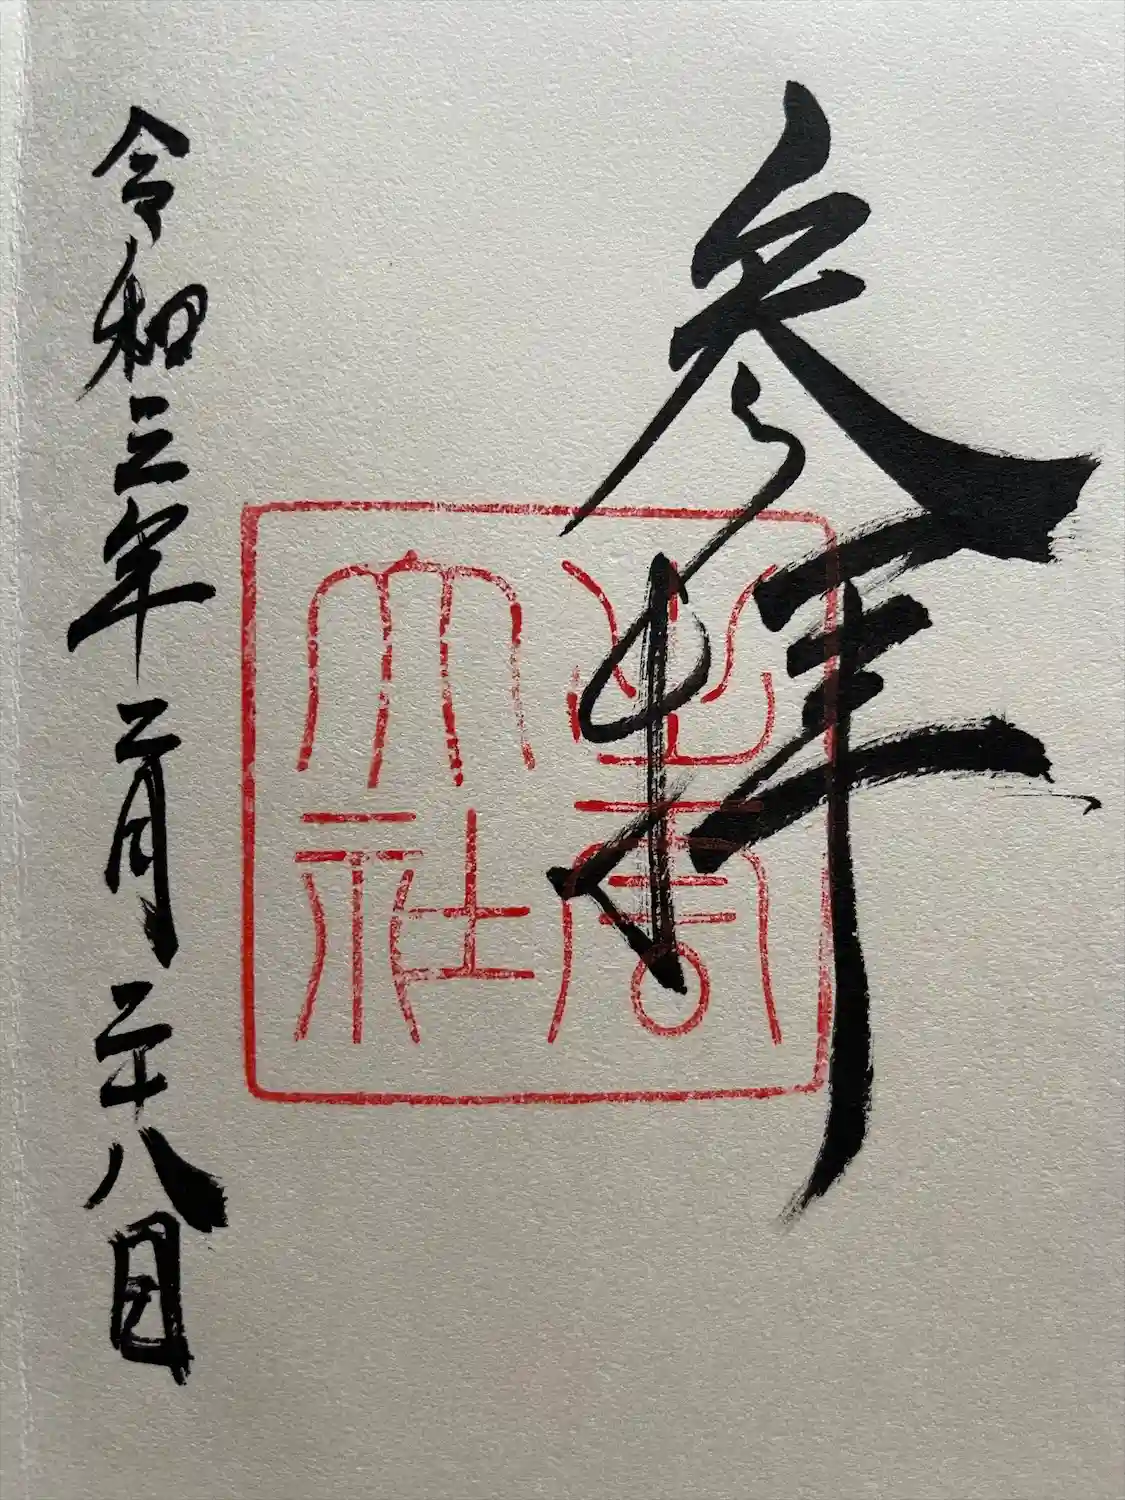 参拝
出雲
大社
令和三年二月二十八日